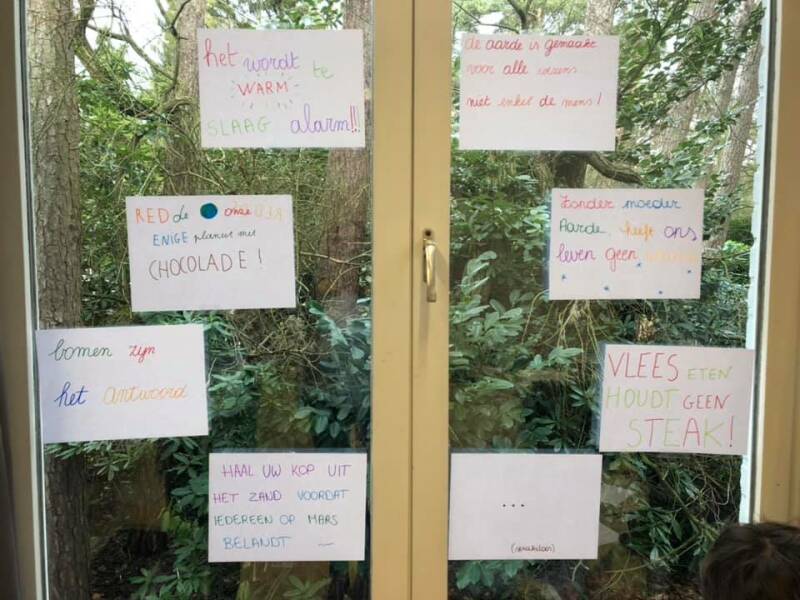 het wordt te
WARM
SLAAG alarm!!!
RED de onze
ENIGE planeet met
CHOCOLADE!
bomen zijn
het antwoord
HAAL UW KOP UIT
HET ZAND VOORDAT
IEDEREEN OP MARS
BELANDT
de aarde is gemaakt
voor alle wezens
niet enkel de mens!
Zonder moeder
Aarde, heeft ons
leven geen
VLEES ETEN
HOUDT GEEN
STEAK!
...
(sprakeloos)